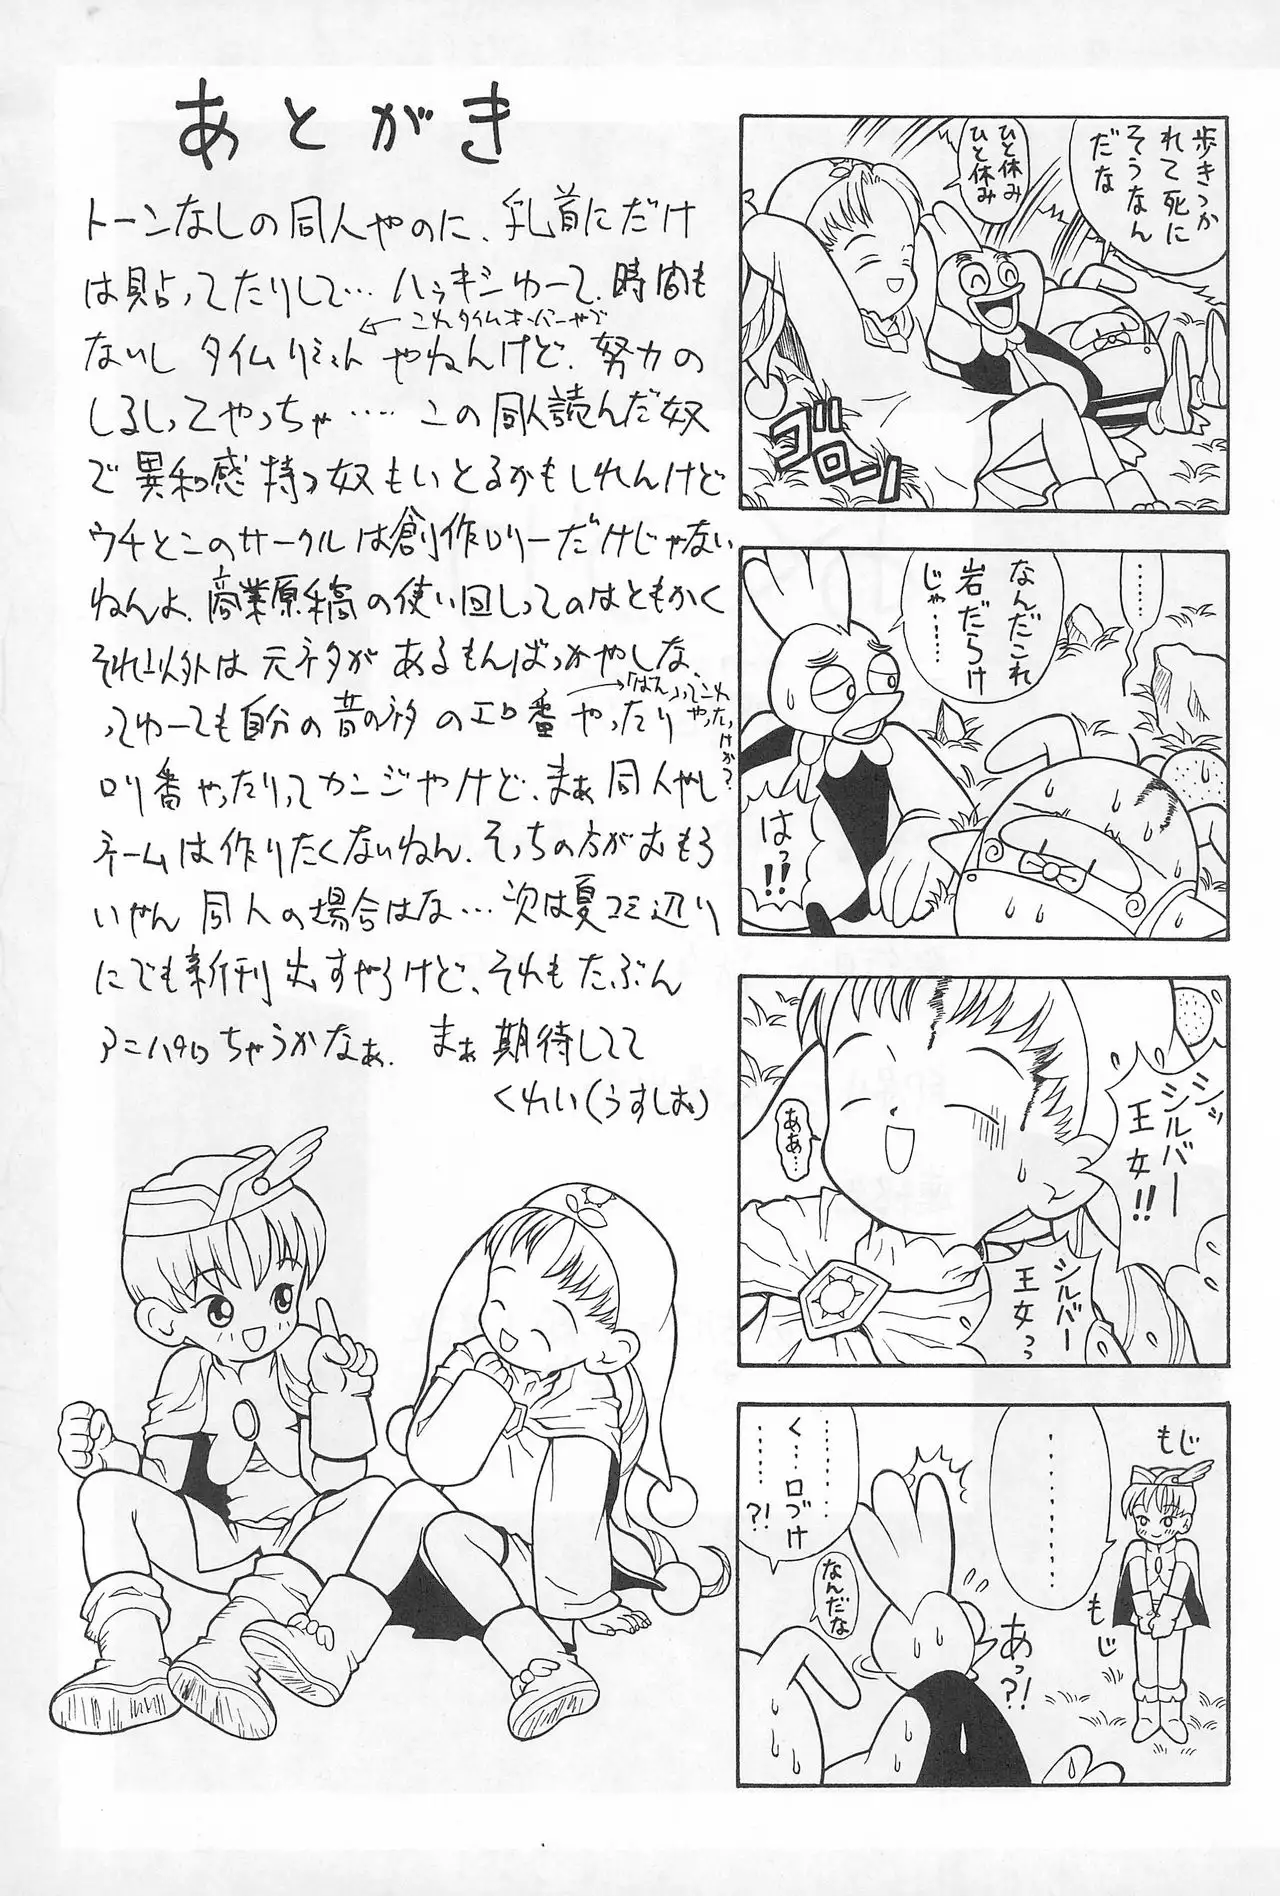 あとがき
トーンなしの同人やのに、乳首にだけ
は貼ってたりして… ハッキシゆーて、時間も
ないし タイムリミットやねんけど、努力の
←これタイムオーバーやで
しるしってやっちゃ…… この同人読んだ奴
で異和感持つ奴もいとるかもしれんけど
ウチとこのサークルは創作ロリーだけじゃない
ねんよ、商業原稿の使い回しってのはともかく
それ以外は 元ネタが あるもんばっかやしな、
ってゆーても自分の昔のネタのエロ番やったり
→「ばん」ってこれ
やったっけか?
ロリ番やったりってカンジやけど、まぁ同人やし
ゲームは作りたくないねん、そっちの方がおもろ
いやん 同人の場合はな… 次は夏コミ辺り
にでも新刊出すやろけど、それもたぶん
アニパロちゃうかなぁ、 まぁ期待してて
くれい(うすしお)
歩きつか
れて死に
そうなん
だな
ひと休み
ひと休み
ゴロゴロ
………
なんだこれ
岩だらけ
じゃ……
はっ!!
シッ
シルバー
王女!!
ああ…
シルバー
王女っっ
もじ
もじ
………
……
く…口づけ
……?!
なんだな
あっ?!